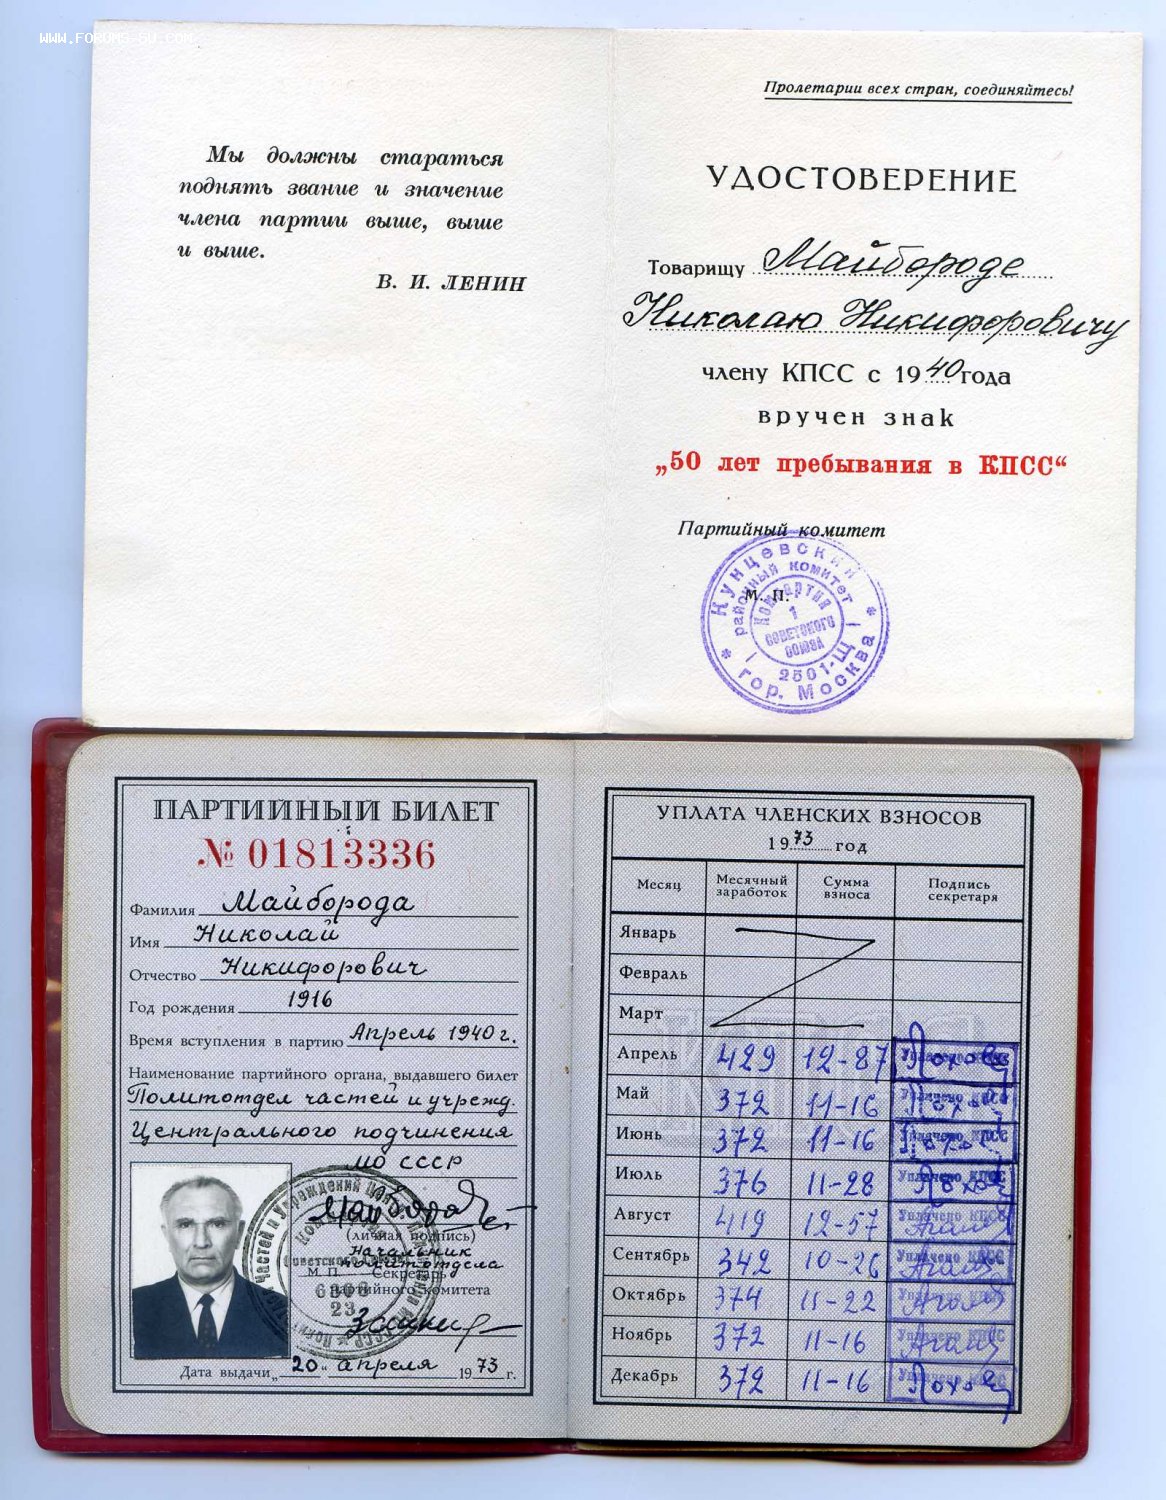 WWW.FORUMS-SU.COM
Мы должны стараться
поднять звание и значение
члена партии выше, выше
и выше.
В. И. ЛЕНИН
Пролетарии всех стран, соединяйтесь!
УДОСТОВЕРЕНИЕ
Товарищу Майбороде
Николаю Никифоровичу
члену КПСС с 1940 года
вручен знак
„50 лет пребывания в КПСС“
Партийный комитет
М. П.
Кунцевский
районный комитет
Компартия
1
СОВЕТСКОГО
СОЮЗА
2501-Щ
гор. Москва
ПАРТИЙНЫЙ БИЛЕТ
№ 01813336
Фамилия Майборода
Имя Николай
Отчество Никифорович
Год рождения 1916
Время вступления в партию Апрель 1940 г.
Наименование партийного органа, выдавшего билет
Политотдел частей и учрежд.
Центрального подчинения
МО СССР
(личная подпись)
Начальник
политотдела
М. П. Секретарь
партийного комитета
Дата выдачи „20“ апреля 1973 г.
УПЛАТА ЧЛЕНСКИХ ВЗНОСОВ
1973 год
Месяц Месячный заработок Сумма взноса Подпись секретаря
Январь
Февраль
Март
Апрель 429 12-87 Уплачено КПСС
Май 372 11-16 Уплачено КПСС
Июнь 372 11-16 Уплачено КПСС
Июль 376 11-28 Уплачено КПСС
Август 419 12-57 Уплачено КПСС
Сентябрь 342 10-26 Уплачено КПСС
Октябрь 374 11-22 Уплачено КПСС
Ноябрь 372 11-16 Уплачено КПСС
Декабрь 372 11-16 Уплачено КПСС